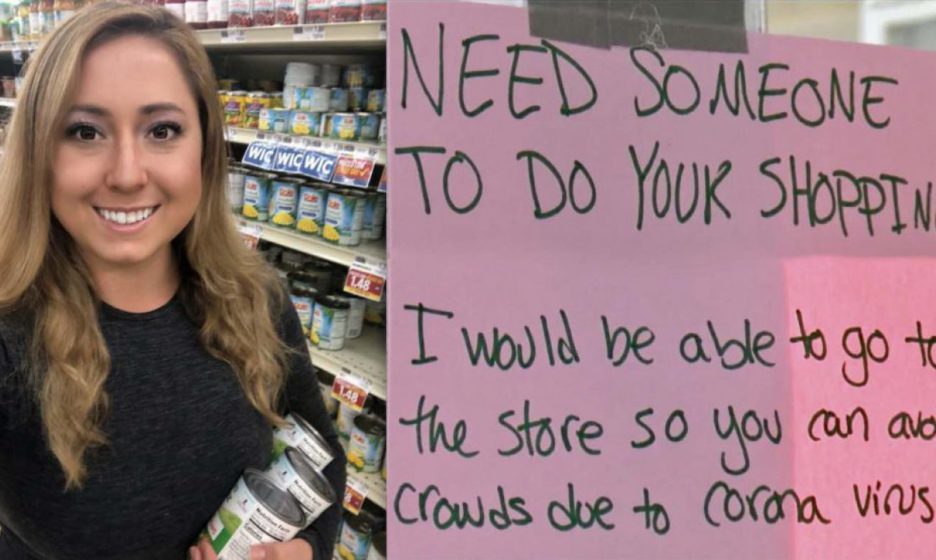 WIC WIC WIC
Dole Dole Dole
1.48
1.48
Nutrition Facts
NEED SOMEONE
TO DO YOUR SHOPPIN
I would be able to go to
the store so you can avo
crowds due to corona virus